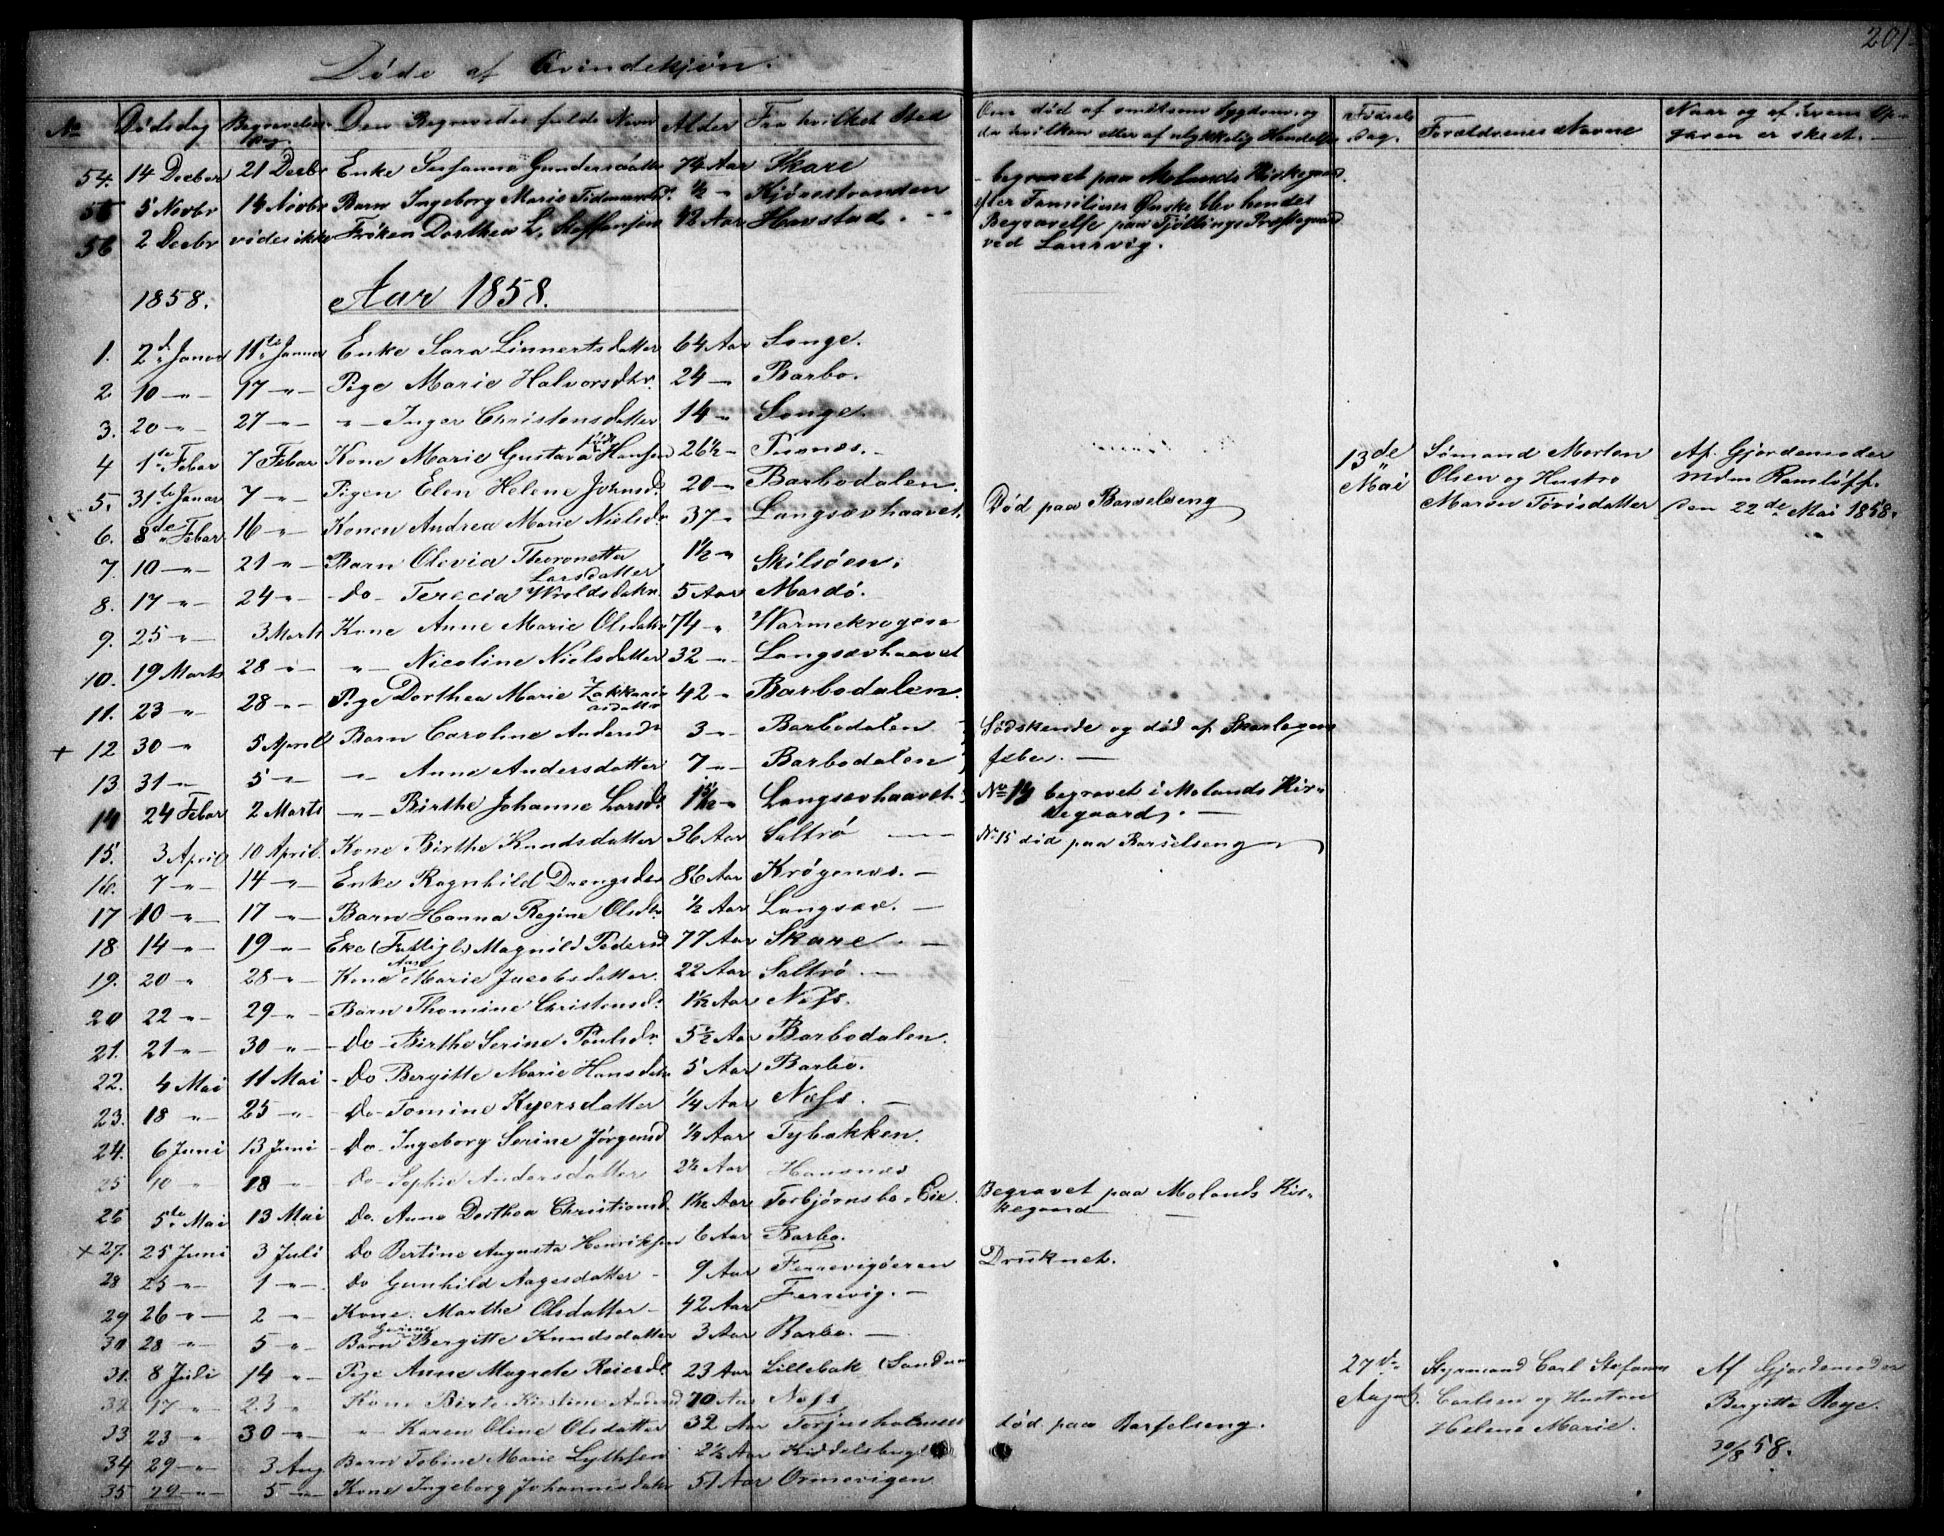 201
Døde af Qvindekjøn.
No Dødsdag Begravelses Dag Den Begravedes fulde Navn Alder Fra hvilket Sted Om død af smitsom Sygdom, og da hvilken eller af ulykkelig Hændelse Fødsels Dag. Forældrenes Navne Naar og af hvem
54. 14 Decber 21 Decbr Enke Susanne 74 Aar Skare - begravet paa Molands Kirkegaard
55 5 Novbr 14 Novbr Barn Ingeborg Marie ½ -"- Kjørrstranden efter Familiens Ønske blev hendes
56 2 Decbr vides ikke Frøken Dorthea L. Steffensen 42 Aar Havstad Begravelse paa Tjøllings Præstegaard
ved Laurvig.
1858. Aar 1858.
1. 2d Januar 11te Januar Enke Sara Linnertsdatter 64 Aar Songe.
2 10 -"- 17 -"- Pige Marie Halvorsdtr. 24 -"- Barbo.
3. 20 -"- 27 -"- -"- Inger Christensdatter 14 -"- Songe
4 1te Febar 7 Febar Kone Marie Gustava født Hansen 26½ -"-
5. 31te Januar 7 -"- Pigen Elen Helene Johnsd. 20 -"- Barbodalen.
6. 8de Febar 16 -"- Konen Andrea Marie Nielsdr 37 -"- Langsævhaavet Død paa Barselseng
13de Mai Sømand Morten Olsen og Hustro Maren Tørisdatter Af Gjordemoder Mdm Ramløff. den 22de Mai 1858.
7. 10 -"- 21 -"- Barn Olevia Theronetta Larsdatter 1½ -"- Skilsøen.
8. 17 -"- 24 -"- -Do- Terecia 5 Aar Mardø.
9. 25 -"- 3 Marts Kone Anne Marie Olsdatr 74 -"- Warmekrogen
10. 19 Marts 28 -"- -"- Nicoline Nielsdatter 32 -"- Langsævhaavet
11. 23 -"- 28 -"- Pige Dorthea Marie Zakkariasdatter 42 -"- Barbodalen.
+ 12 30 -"- 5 April Barn Caroline Andersdr 3 -"- Barbodalen Sødskende og død af Skarlagens
13 31 -"- 5 -"- -"- Anne Andersdatter 7 -"- Barbodalen feber. —
14 24 Febar 2 Marts -"- Birthe Johanne Larsd. Langsævhaavet No 14 begravet i Molands Kirkegaard. —
15. 3 April 10 April. Kone Birthe Knudsdatter 36 Aar Saltrø No 15 død paa Barselseng
16. 7 -"- 14 -"- Enke Ragnhild Drengsdr 86 Aar Krøgenes. —
17 10 -"- 17 -"- Barn Hanna Regine Olsdr. ½ Aar Langsæv. —
18 14 -"- 19 -"- Eke (Fattigl.) Magnild Pedersd 77 Aar Skare. —
19. 20 -"- 28 -"- Kone Aase Marie Jacobsdatter. 22 Aar Saltrø. —
20 22 -"- 29 -"- Barn Thomine Christensd. 1½ Aar Næss.
21. 21 -"- 30 -"- -Do- Birthe Serine Poulsdr 5½ Aar Barbodalen.
22. 4 Mai 11 Mai -Do Bergitte Marie Hansdatr 5 Aar Barbo.
23. 18 -"- 25 -"- -Do- Tomine Kyersdatter ¼ Aar Næss. —
24. 6 Juni 13 Juni -Do- Ingeborg Serine Jørgensd ½ Aar Tybakken.
25 10 -"- 18 -"- Do- Sophie Andersdatter 2½ Aar
26 5te Mai 13 Mai Do. Anne Dorthea Christiansd. 1½ Aar Torbjørnsbo. Eie. Begravet paa Molands Kirkegaard
+ 27. 25 Juni 3 Juli Do Bertine Augusta Henriksen 6 Aar Barbo. Druknet.
28 25 -"- 1 -"- Do Gunhild Aagesdatter 9 Aar Ferrevigøeren
29 26 -"- 2 -"- Kone. Marthe Olsdatter 42 Aar Ferrevig. —
30 28 -"- 5 -"- Barn Bergitte Knudsdatter 3 Aar Barbo. —
31. 8 Juli 14 -"- Pige Anne Magrete Reiersd. 23 Aar Lillebak
32 17 -"- 23 -"- Kone Birte Kirstine 70 Aar Næss
33 23 -"- 30 -"- -"- Karen Oline Olsdatter 32 Aar Torjusholmen død paa Barselseng.
27de August. Styrmand Carl Stefanus Carlsen og Hustru Helene Marie. Af Gjordemoder Bergitte Boye. 30/8 58.
34 29 -"- 3 Aug Barn Tobine Marie Lythsen 2½ Aar
35 29 -"- 5 -"- Kone Ingeborg Johannisdatr 51 Aar Ormevigen